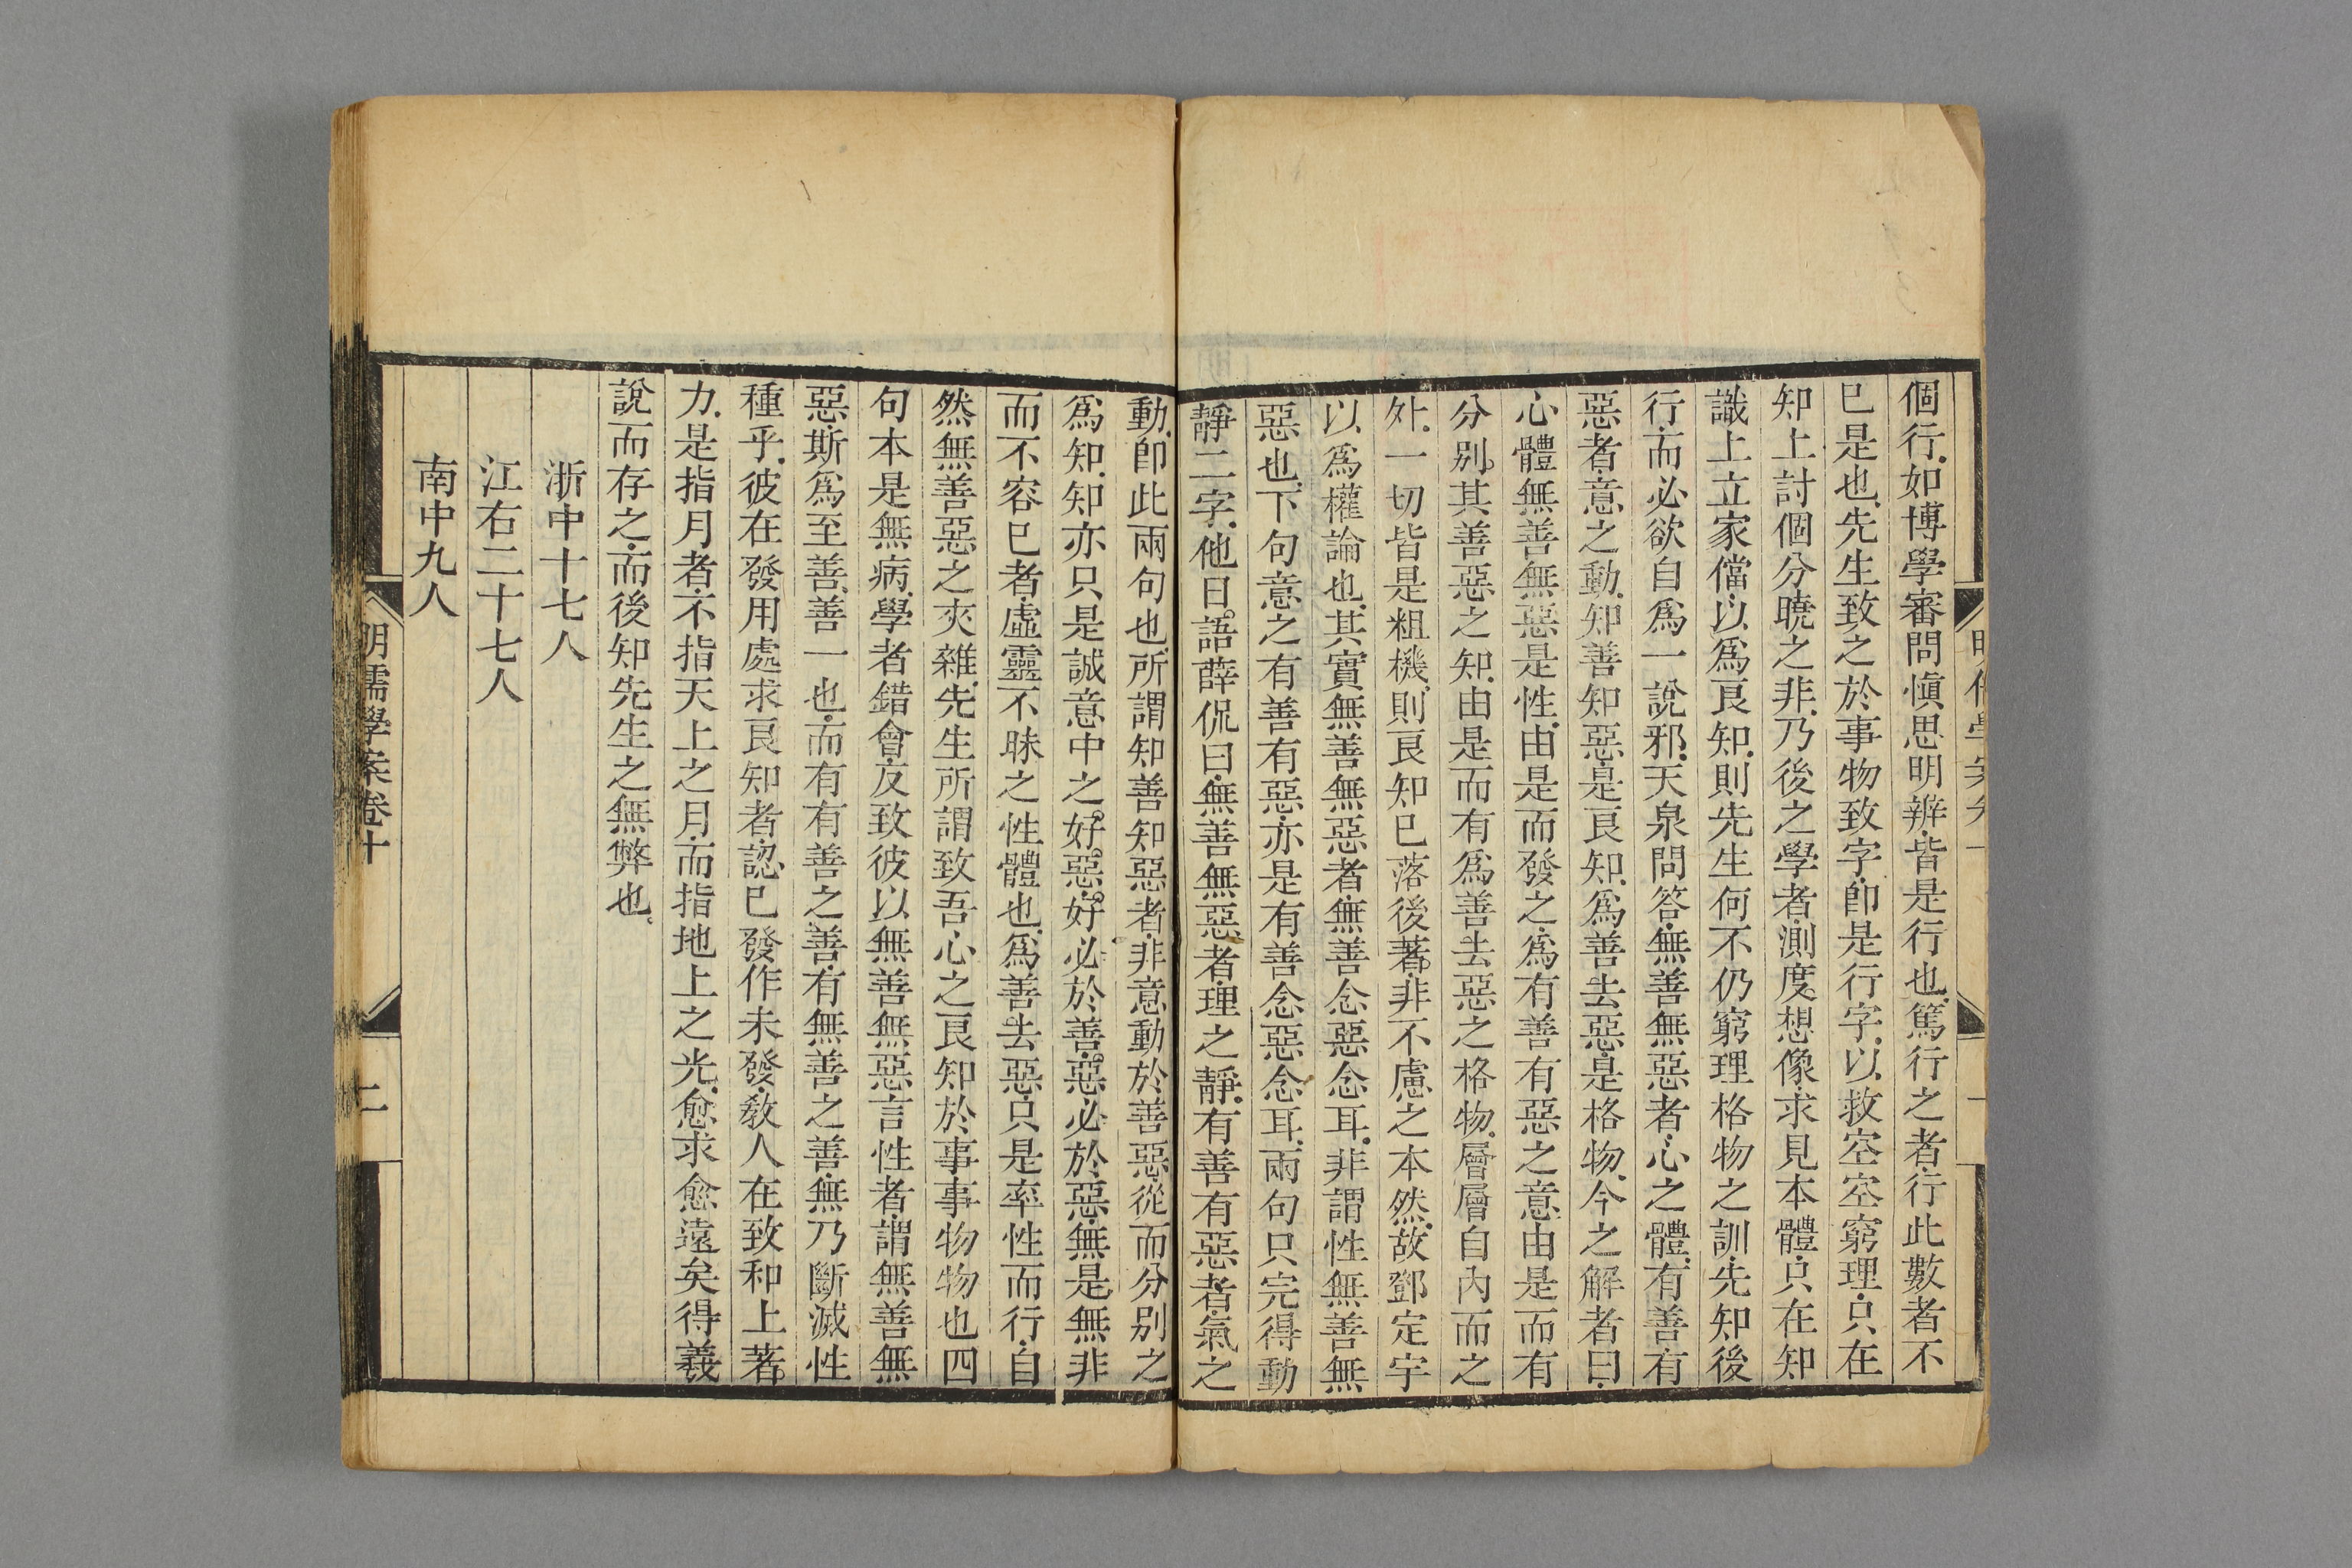 個行如博學審問愼思明辨皆是行也篤行之者行此數者不
已是也先生致之於事物致字卽是行字以救空空窮理只在
知上討個分曉之非乃後之學者測度想像求見本體只在知
識上立家儅以爲良知則先生何不仍窮理格物之訓先知後
行而必欲自爲一說邪天泉問答無善無惡者心之體有善有
惡者意之動知善知惡是良知爲善去惡是格物今之解者曰
心體無善無惡是性由是而發之爲有善有惡之意由是而有
分別其善惡之知由是而有爲善去惡之格物層層自內而之
外一切皆是粗機則良知已落後著非不慮之本然故鄧定宇
以爲權論也其實無善無惡者無善念惡念耳非謂性無善無
惡也下句意之有善有惡亦是有善念惡念耳兩句只完得動
靜二字他日語薛侃曰無善無惡者理之靜有善有惡者氣之
動卽此兩句也所謂知善知惡者非意動於善惡從而分別之
爲知知亦只是誠意中之好惡好必於善惡必於惡無是無非
而不容已者虛靈不昧之性體也爲善去惡只是率性而行自
然無善惡之夾雜先生所謂致吾心之良知於事事物物也四
句本是無病學者錯會反致彼以無善無惡言性者謂無善無
惡斯爲至善善一也而有有善之善有無善之善無乃斷滅性
種乎彼在發用處求良知者認已發作未發敎人在致和上著
力是指月者不指天上之月而指地上之光愈求愈遠矣得羲
說而存之而後知先生之無弊也
浙中十七人
江右二十七人
南中九人
明儒學案卷十
二